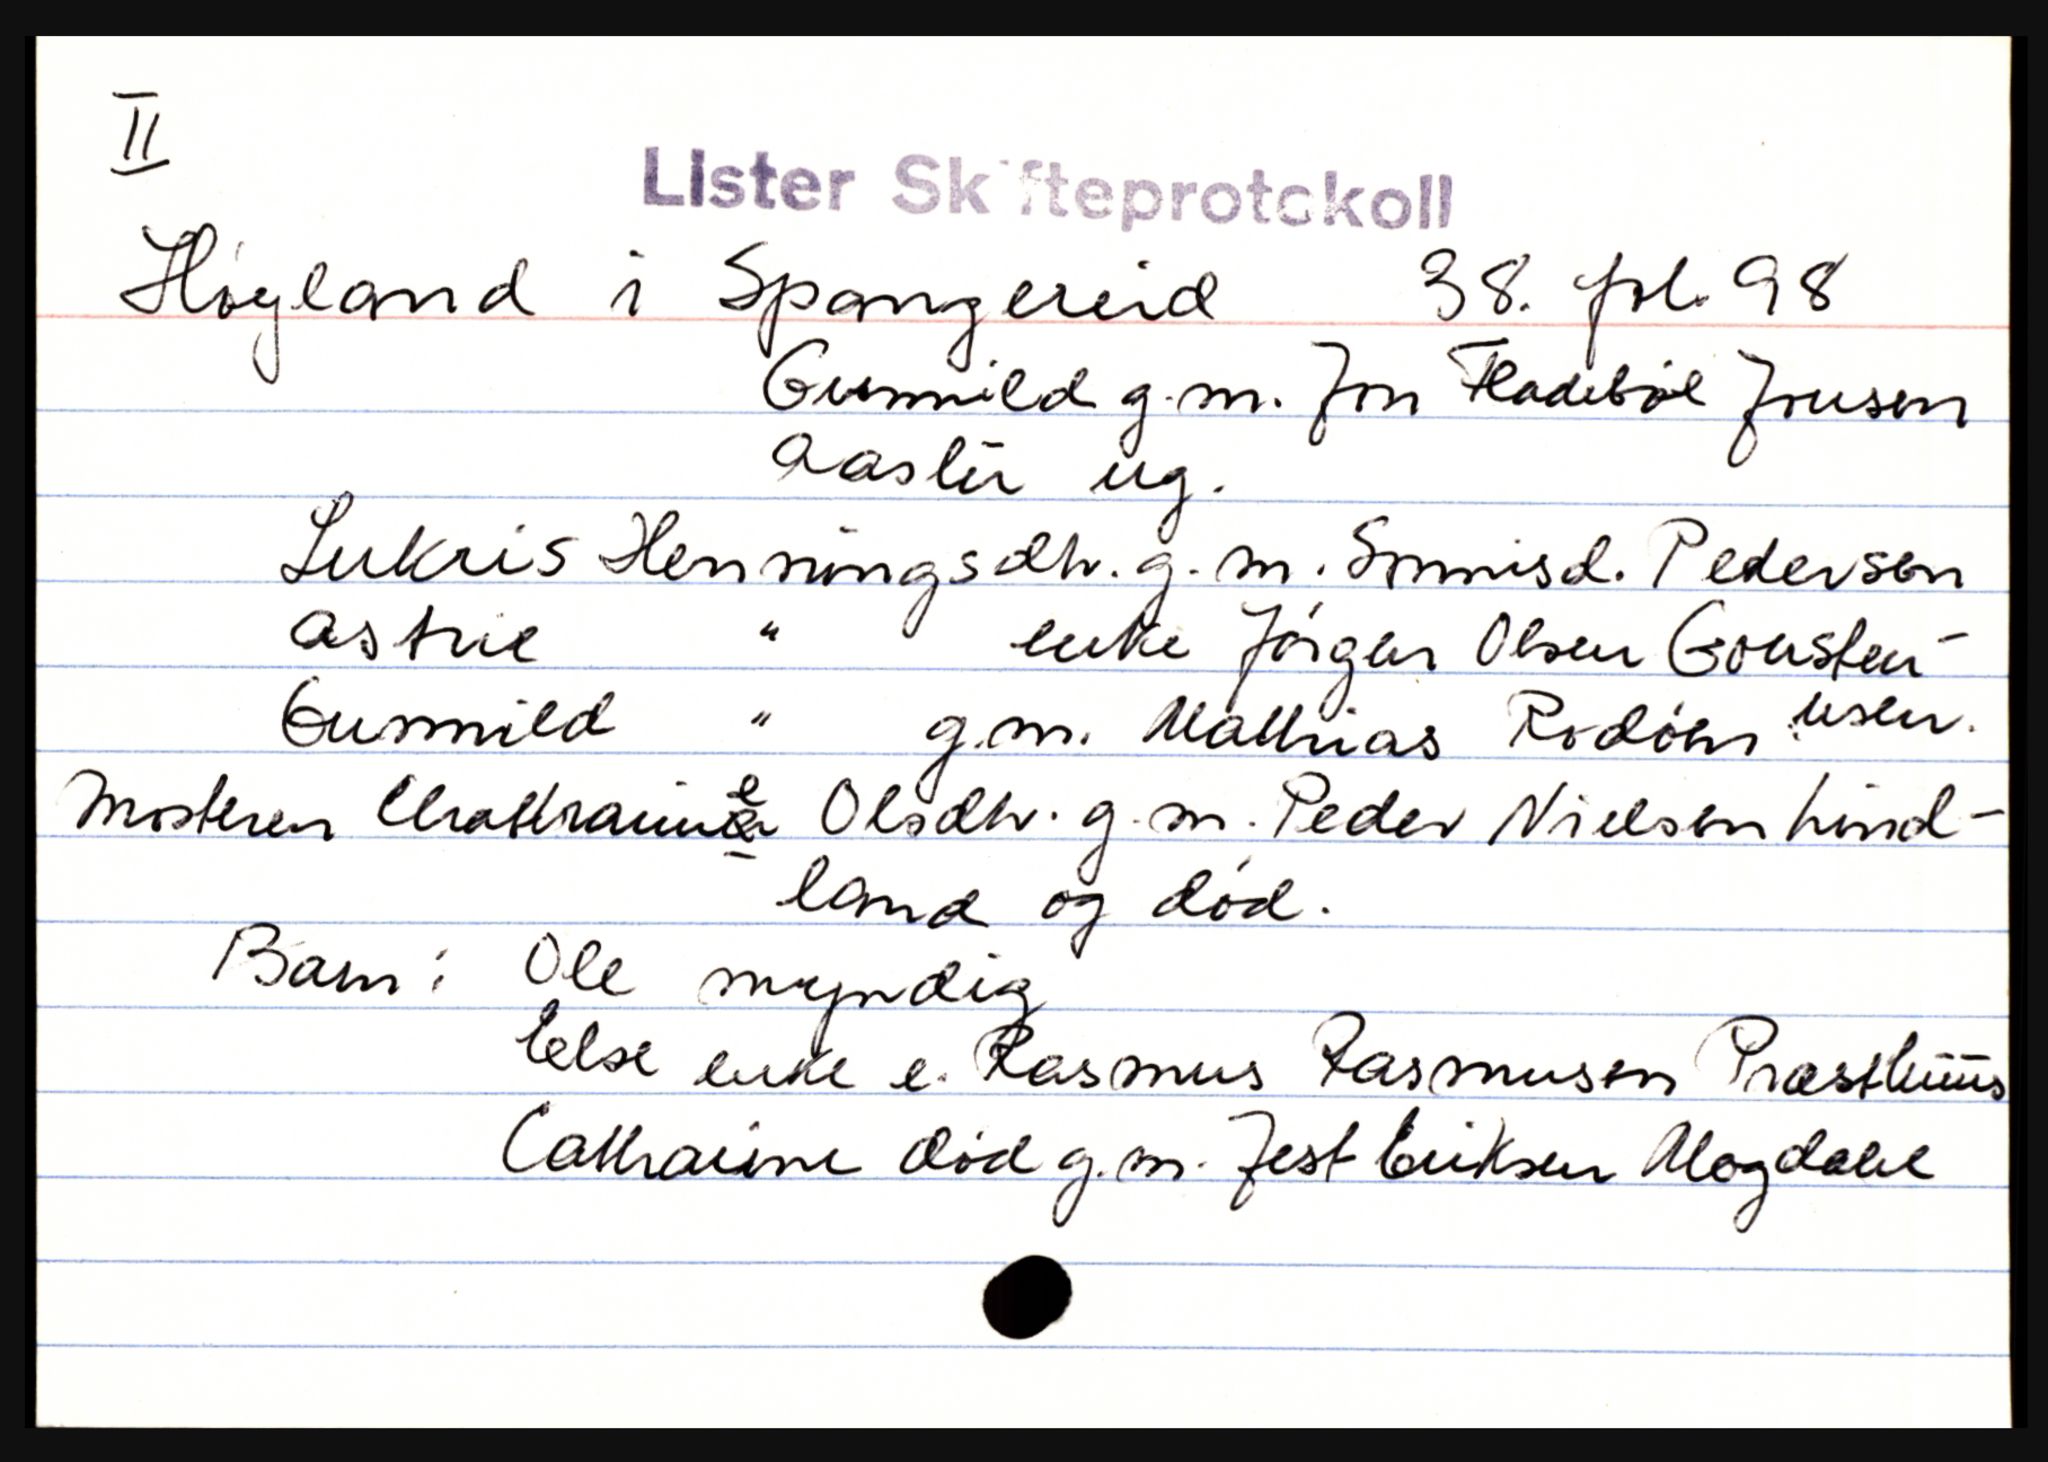 II
Lister Skifteprotokoll
Høyland i Spangereid 38. fol. 98
Gunnild g.m. Jon Fladebøl Jonsen
Aaslir ug.
Lukris Henningsdtr. g.m. Pedersen
Astrie " enke Jørgen Olsen Gonsten-
Gunnild " g.m. Mathias Rodøen usen.
Mosteren Olsdtr. g.m. Peder Nielsen Lind-
land og død.
Barn: Ole myndig
Else enke e. Rasmus Rasmusen Præsthuus
Cathrine død g.m. Jest Eriksen Mogdale